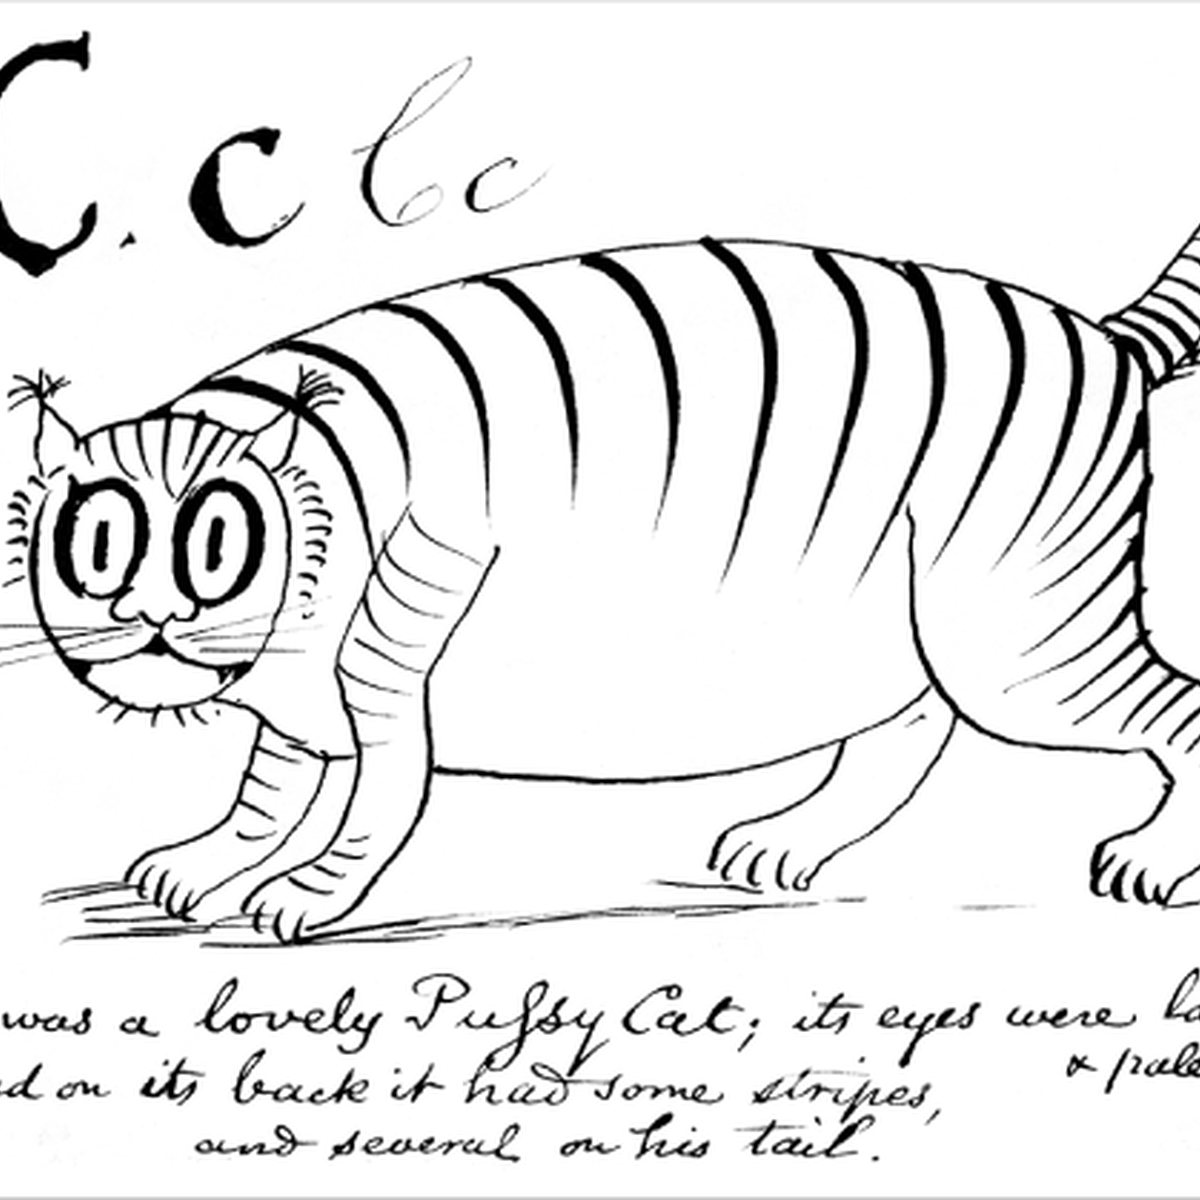 C. c C c
was a lovely Pussy Cat; its eyes were la
& pale
d on its back it had some stripes,
and several on his tail.